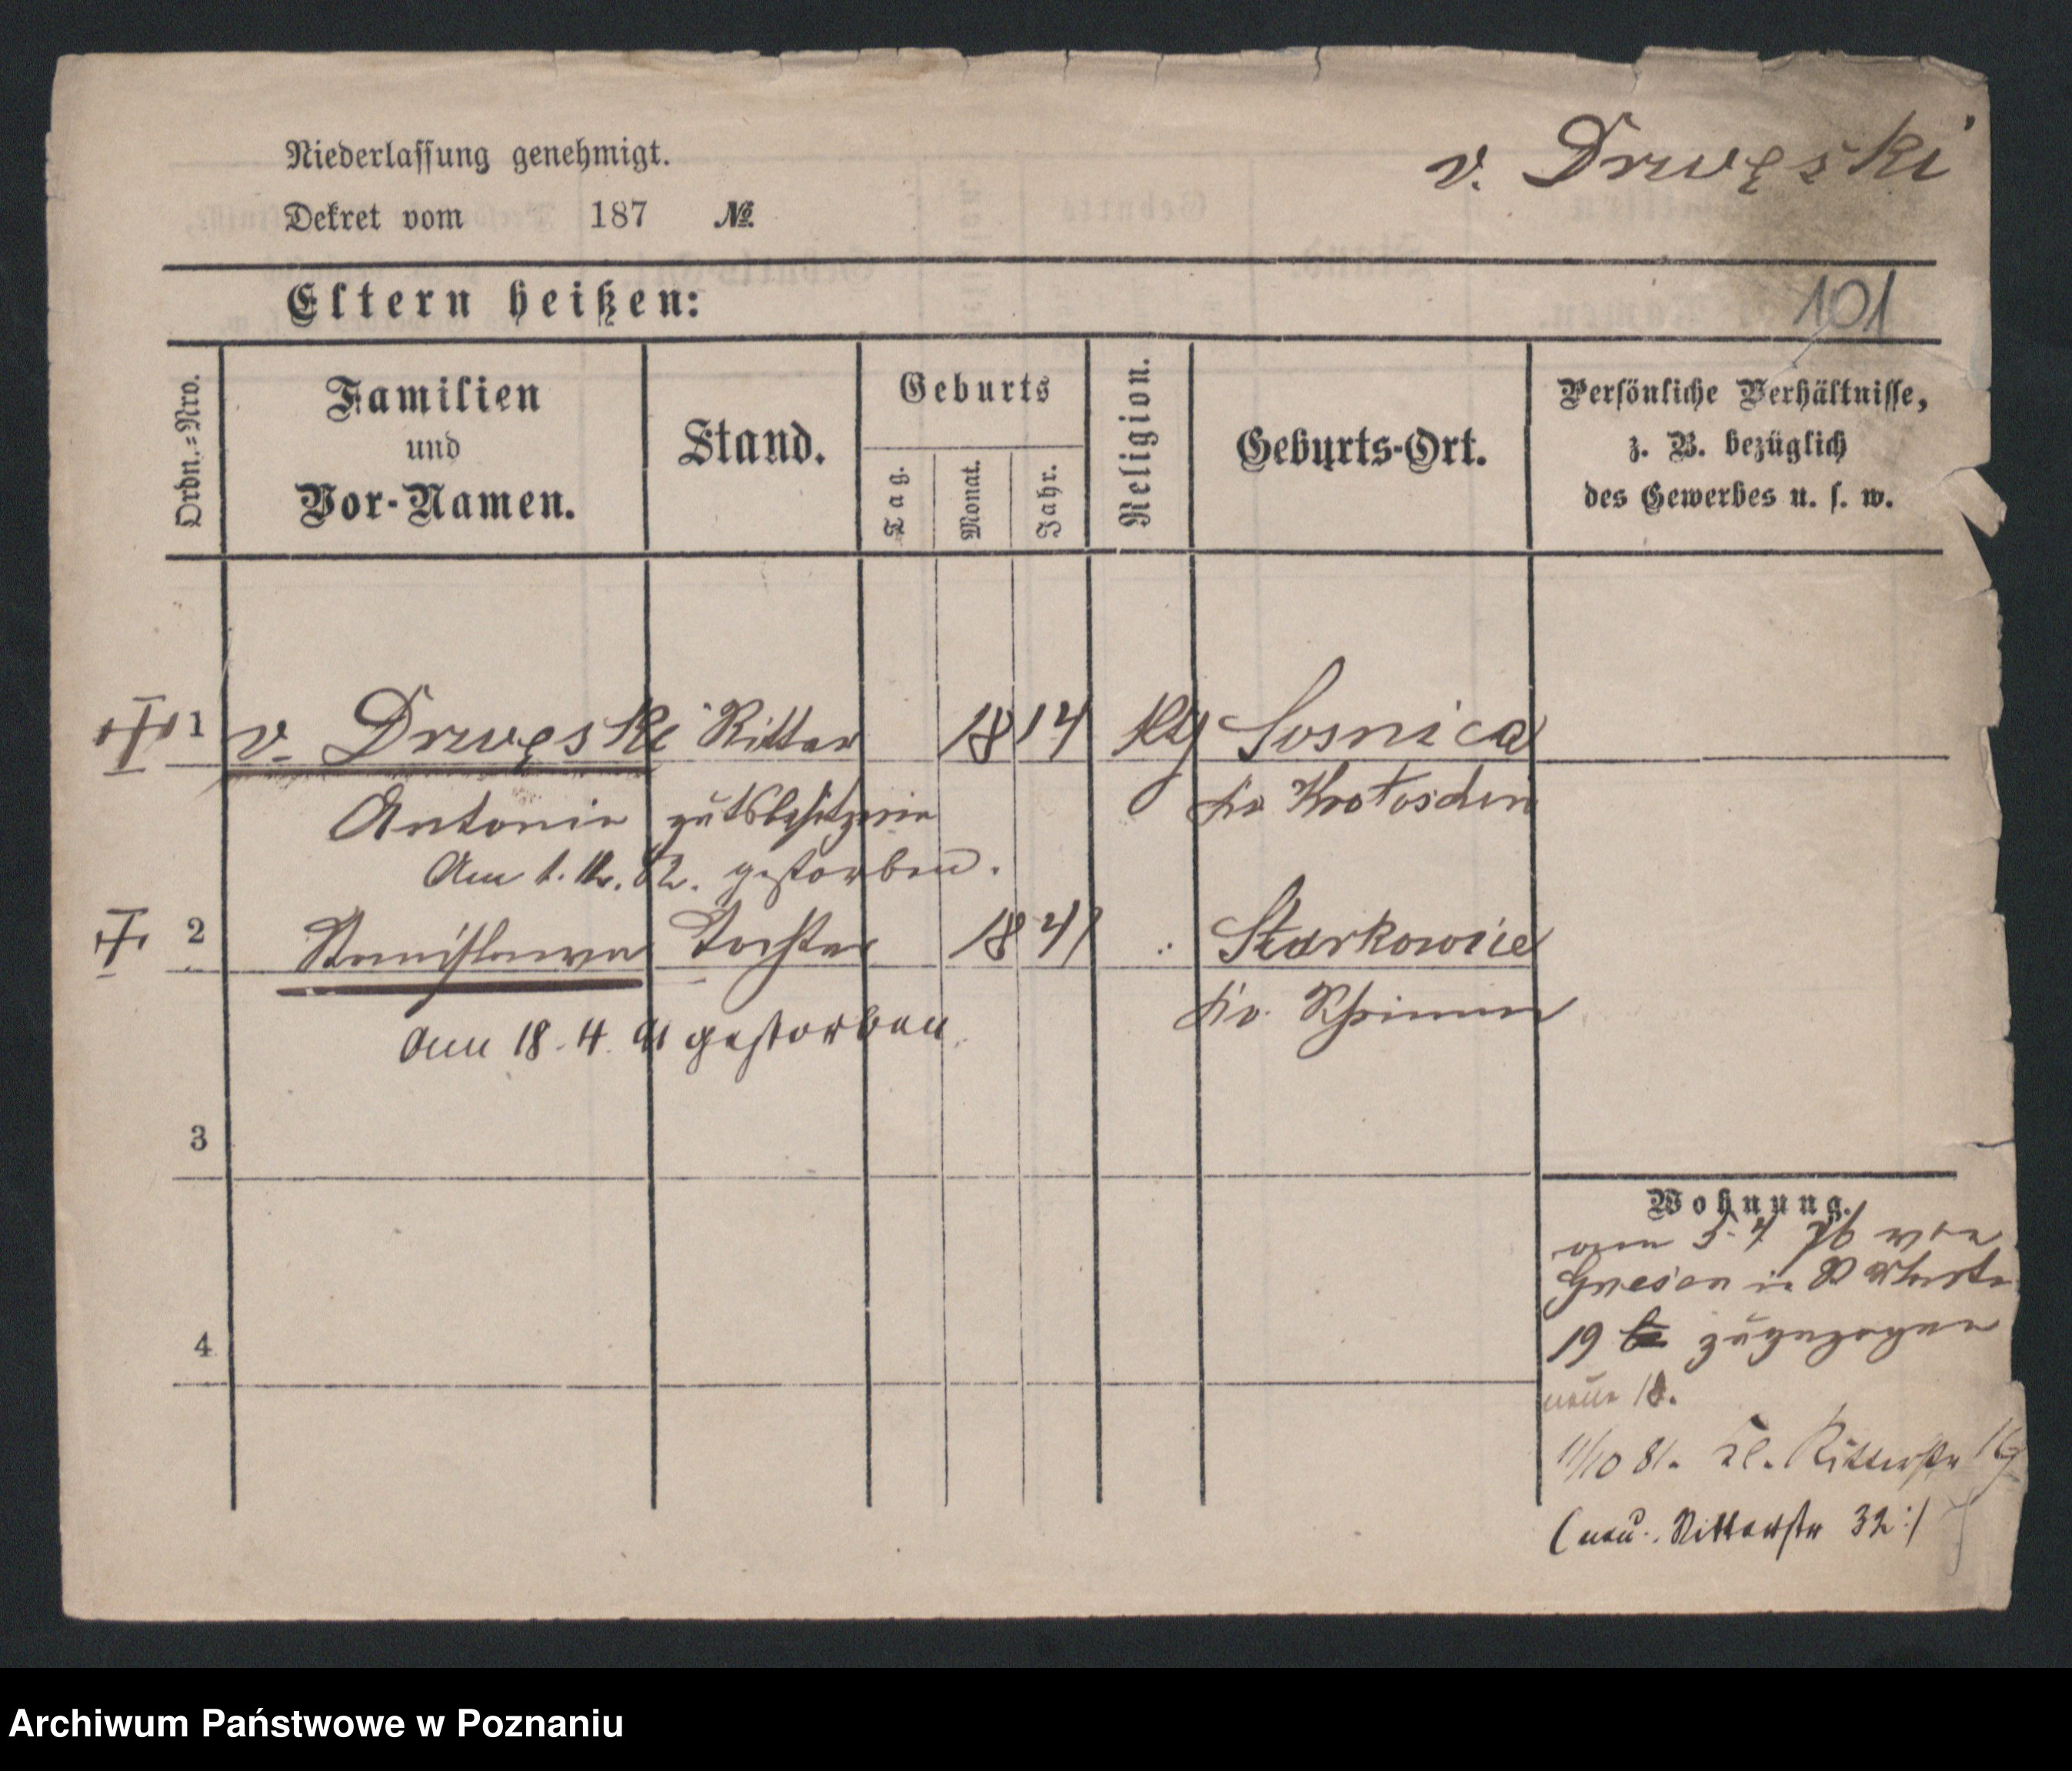 v. Drwęski
Niederlassung genehmigt.
Dekret vom 187 №
Eltern heißen:
101
Ordn.=Nro.
Familien
und
Vor-Namen.
Stand.
Geburts
Tag.
Monat.
Jahr.
Religion.
Geburts-Ort.
Persönliche Verhältnisse,
z. B. bezüglich
des Gewerbes u. s. w.
1 v. Drwęski Ritter 1814 Sosnica
Antonie gutsbesitzerin Kr. Krotoschin
Am 1. 82. gestorben.
2 Stanislawa Tochter 1841 Starkowice
Kr.
Am 18. 4. 91 gestorben
3
4
Wohnung.
am 5. 76 von
Gnesen in
19 zugezogen
neue 18.
11/10 81. Kl. Ritterstr 16
(neu. Ritterstr 32:)
Archiwum Państwowe w Poznaniu